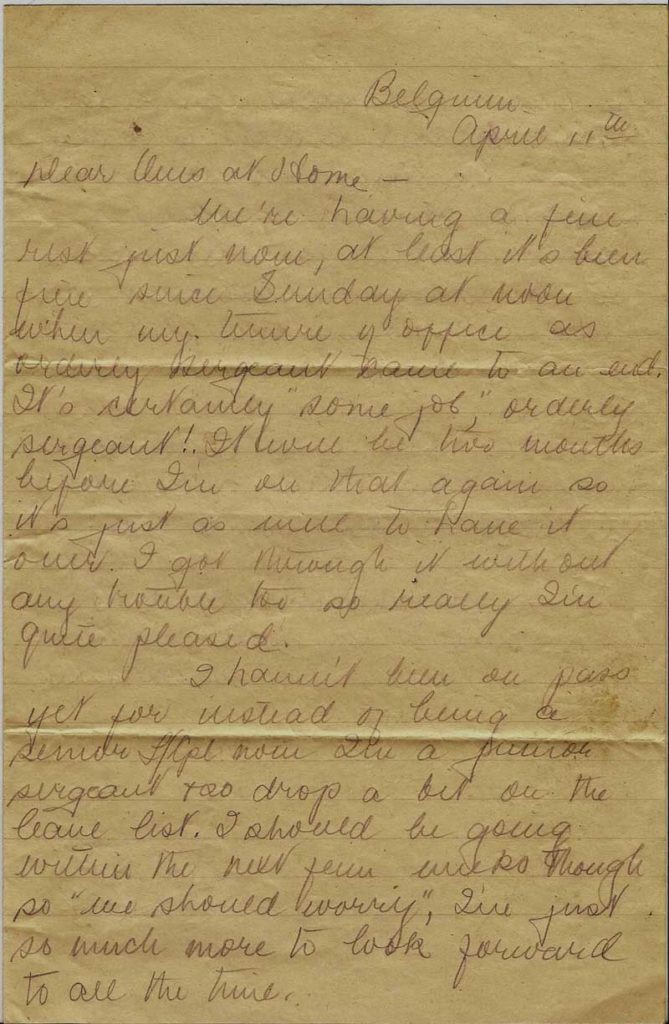 Belgium
April 11th
Dear Ones at Home —
We're having a fine
rest just now, at least it's been
fine since Sunday at noon
when my tenure of office as
orderly sergeant came to an end.
It's certainly "some job," orderly
sergeant! It will be two months
before I'm on that again so
it's just as well to have it
over. I got through it without
any trouble too so really I'm
quite pleased.
I haven't been on pass
yet for instead of being a
senior L/Cpl now I'm a junior
sergeant & so drop a bit on the
leave list. I should be going
within the next few weeks though
so "we should worry", I've just
so much more to look forward
to all the time.